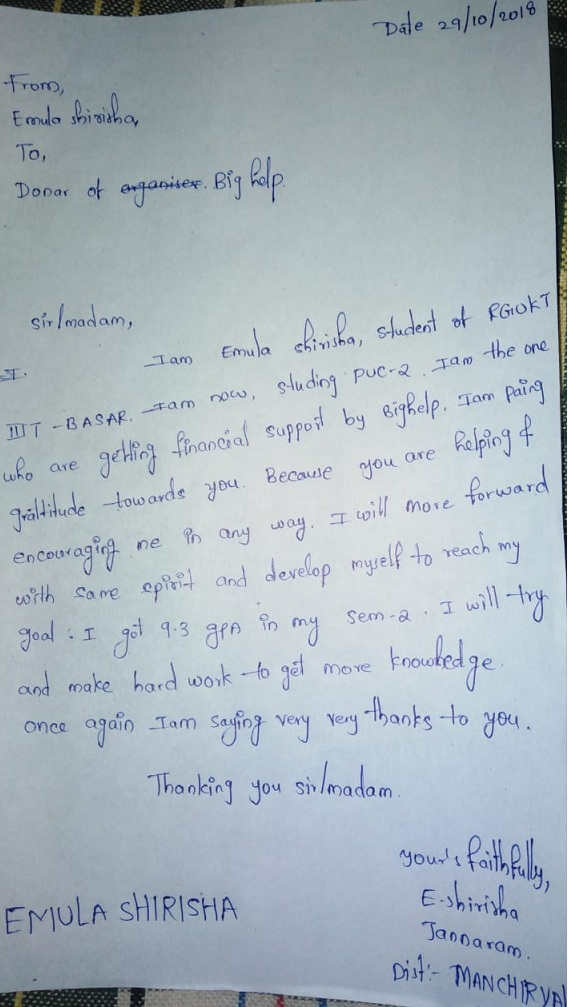 Date 29/10/2018
From,
Emula shirisha,
To,
Donar of organiser. Big help.
sir/madam,
I. Iam Emula shirisha, student of RGUKT
IIIT - BASAR. Iam now, studing PUC-2. Iam the one
who are getting financial support by Bighelp. Iam paing
gratitude towards you. Because you are helping &
encouraging me in any way. I will more forward
with same spirit and develop myself to reach my
goal : I got 9.3 gpA in my sem-2. I will try
and make hard work to get more knowledge.
once again Iam saying very very thanks to you.
Thanking you sir/madam.
your's faithfully,
E. shirisha
Jannaram.
Dist:- MANCHIRYAL
EMULA SHIRISHA